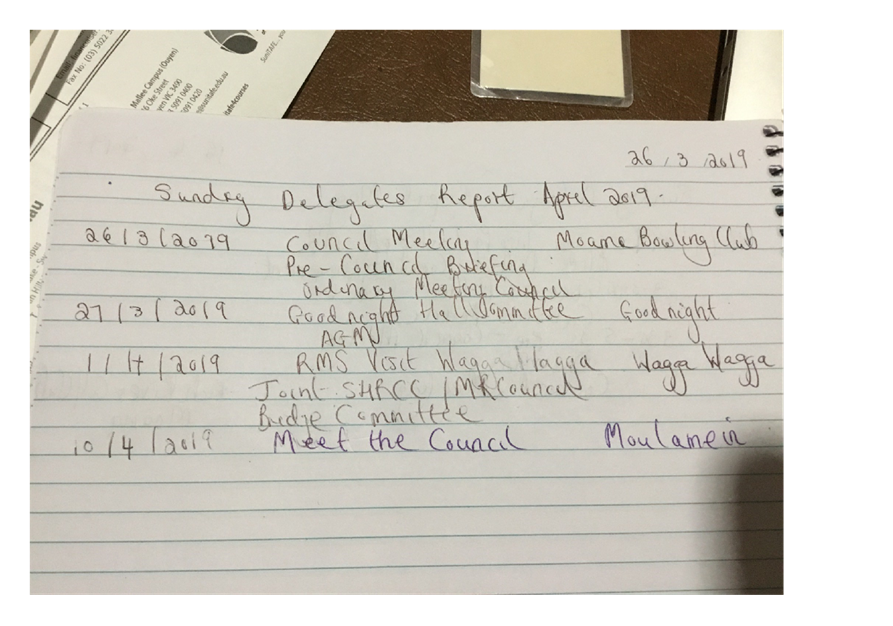 Mallee Campus (Ouyen)
Fax No: (03) 5022 3
26/3/2019
Sundry Delegates Report April 2019.
26/3/2019 Council Meeting Moama Bowling Club
Pre-Council Briefing
Ordinary Meeting Council
27/3/2019 Goodnight Hall Committee Goodnight
AGM
1/4/2019 RMS Visit Wagga Wagga Wagga Wagga
Joint SHRCC/MRCouncil
Budge Committee
10/4/2019 Meet the Council Moulamein